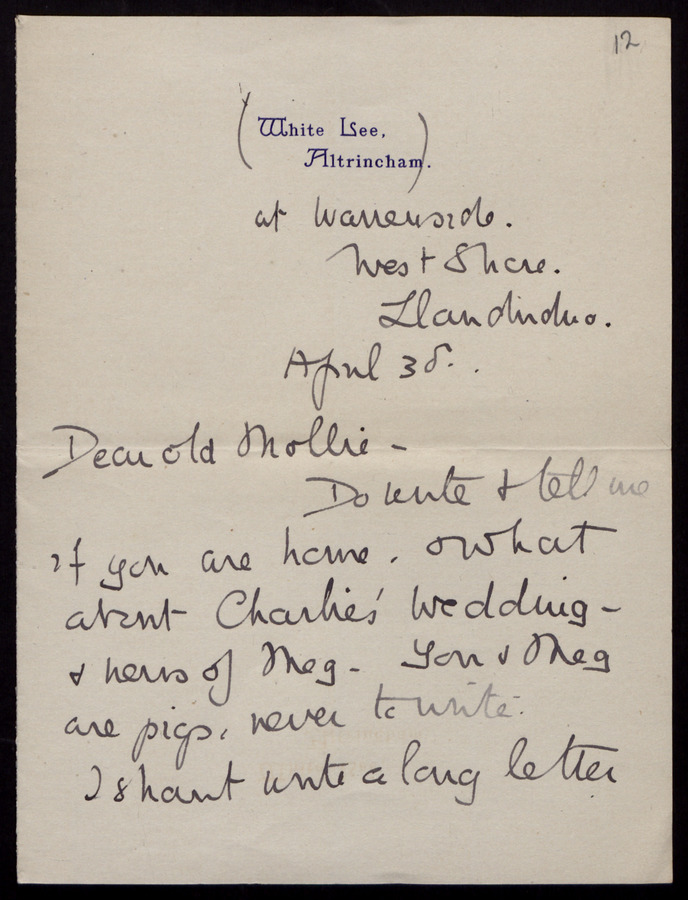 12
(White Lee,
Altrincham.)
at Warrenside.
West Shore.
Llandudno.
April 30.
Dear old Mollie -
Do write & tell me
if you are home. & what
about Charlie's Wedding -
& news of Meg - You & Meg
are pigs, never to write.
I shant write a long letter